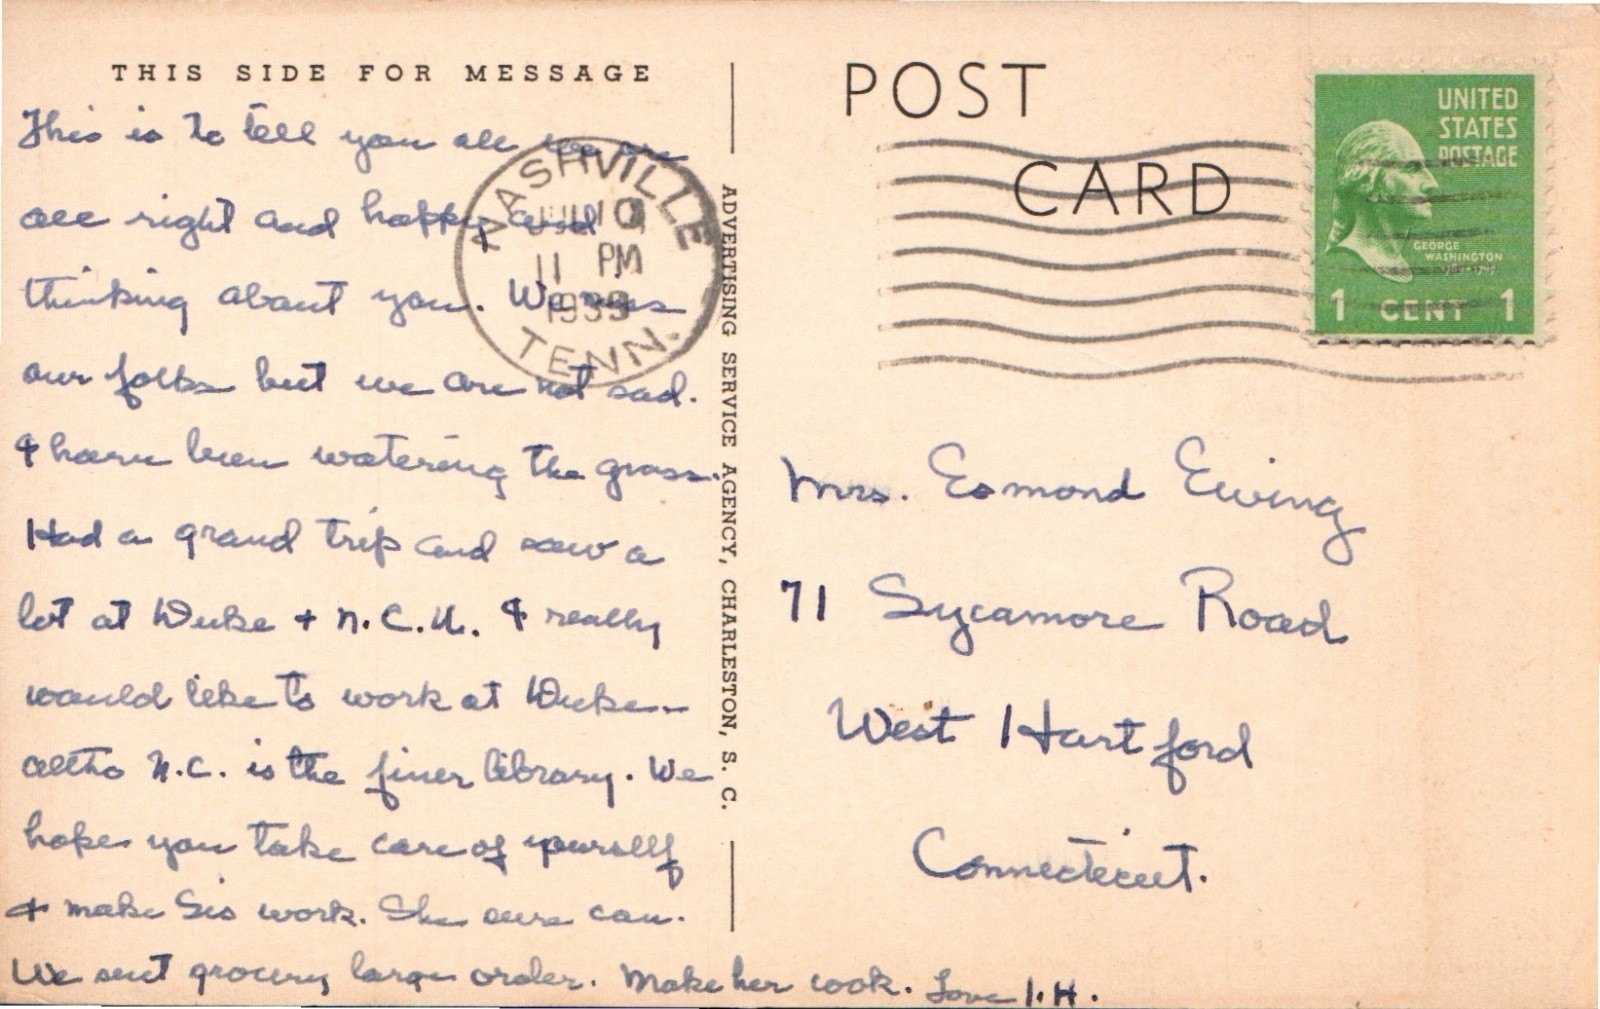 THIS SIDE FOR MESSAGE
This is to tell you all we are
all right and happy and
thinking about you. We miss
our folks but we are not sad.
I have been watering the grass.
Had a grand trip and saw a
lot at Duke + N.C.U. I really
would like to work at Duke -
altho N.C. is the finer library. We
hope you take care of yourself
+ make Sis work. She sure can.
We sent grocery large order. Make her cook. Love I.H.
NASHVILLE
JUL 10
11 PM
1939
TENN.
ADVERTISING SERVICE AGENCY, CHARLESTON, S. C.
POST
CARD
UNITED
STATES
POSTAGE
GEORGE
WASHINGTON
1 CENT 1
Mrs. Esmond Ewing
71 Sycamore Road
West Hartford
Connecticut.